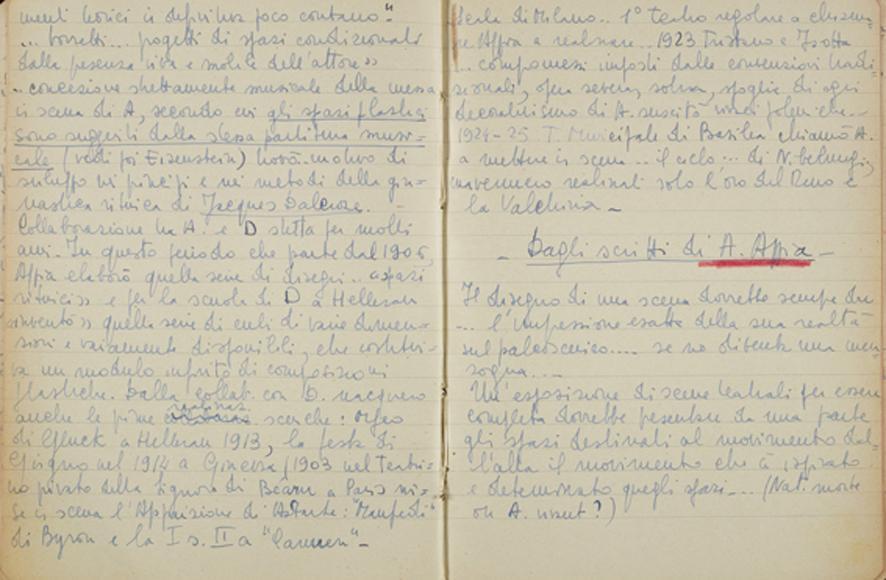 menti teorici in definitiva poco contano."
... bozzetti... progetti di spazi condizionati
dalla presenza viva e mobile dell'attore»
.. concezione strettamente musicale della messa
in scena di A, secondo cui gli spazi plastici
sono suggeriti dalla stessa partitura musi=
cale (vedi poi Eisenstein) trovò motivo di
sviluppo nei principi e nei metodi della gin=
nastica ritmica di Jacques Dalcroze.
Collaborazione tra A. e D stretta per molti
anni. In questo periodo che parte dal 1906,
Appia elaborò quella serie di disegni.. «spazi
ritmici» e per la scuola di D a Hellerau
«inventò» quella serie di cubi di varie dimen=
sioni e variamente disponibili, che costitui-
va un modulo infinito di composizioni
plastiche. Dalla collab. con D. nacquero
anche le prime realizzaz. sceniche: Orfeo
di Gluck a Hellerau 1913, la festa di
Giugno nel 1914 a Ginevra (1903 nel teatri=
no privato della signora di Béarn a Parigi mi=
se in scena l'Apparizione di Astarte: "Manfredi"
di Byron e la I s. II a "Carmen" _
Scala di Milano.. 1° teatro regolare a chiama=
re Appia a realizzare.. 1923 Tristano e Isotta
... compromessi imposti dalle convenzioni tradi=
zionali, opera severa, sobria, spoglia di ogni
decorativismo di A. suscitò vivaci polemiche...
1924-25 T. Municipale di Basilea chiamò A.
a mettere in scena... il ciclo... di Nibelunghi,
ma vennero realizzati solo l'oro del Reno e
la Valchiria _
_ Dagli scritti di A. Appia _
Il disegno di una scena dovrebbe sempre dare
... l'impressione esatta della sua realtà
sul palcoscenico.... se no diventa una men=
zogna....
Un'esposizione di scene teatrali per essere
completa dovrebbe presentare da una parte
gli spazi destinati al movimento dal=
l'altra il movimento che ha ispirato
e determinato quegli spazi... (Nat. morte
on A. vivant?)